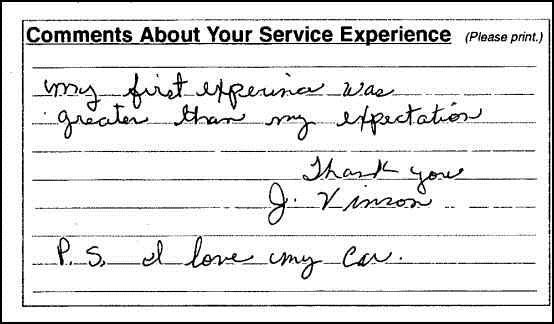 Comments About Your Service Experience (Please print.)
my first experince was
greater than my expectation
Thank you
J. Vinson
P.S. I love my car.